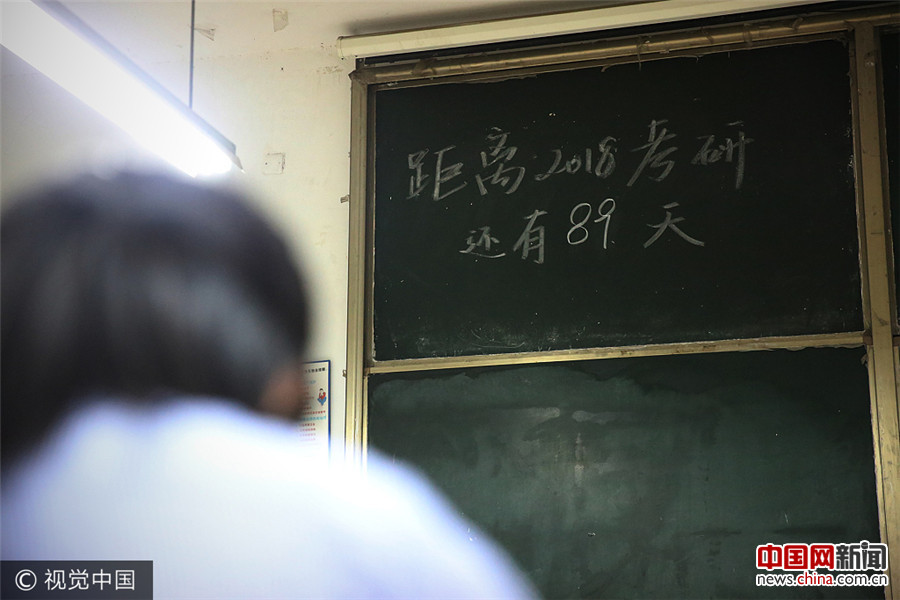 距离2018考研
还有89天
© 视觉中国
中国网新闻
news.china.com.cn